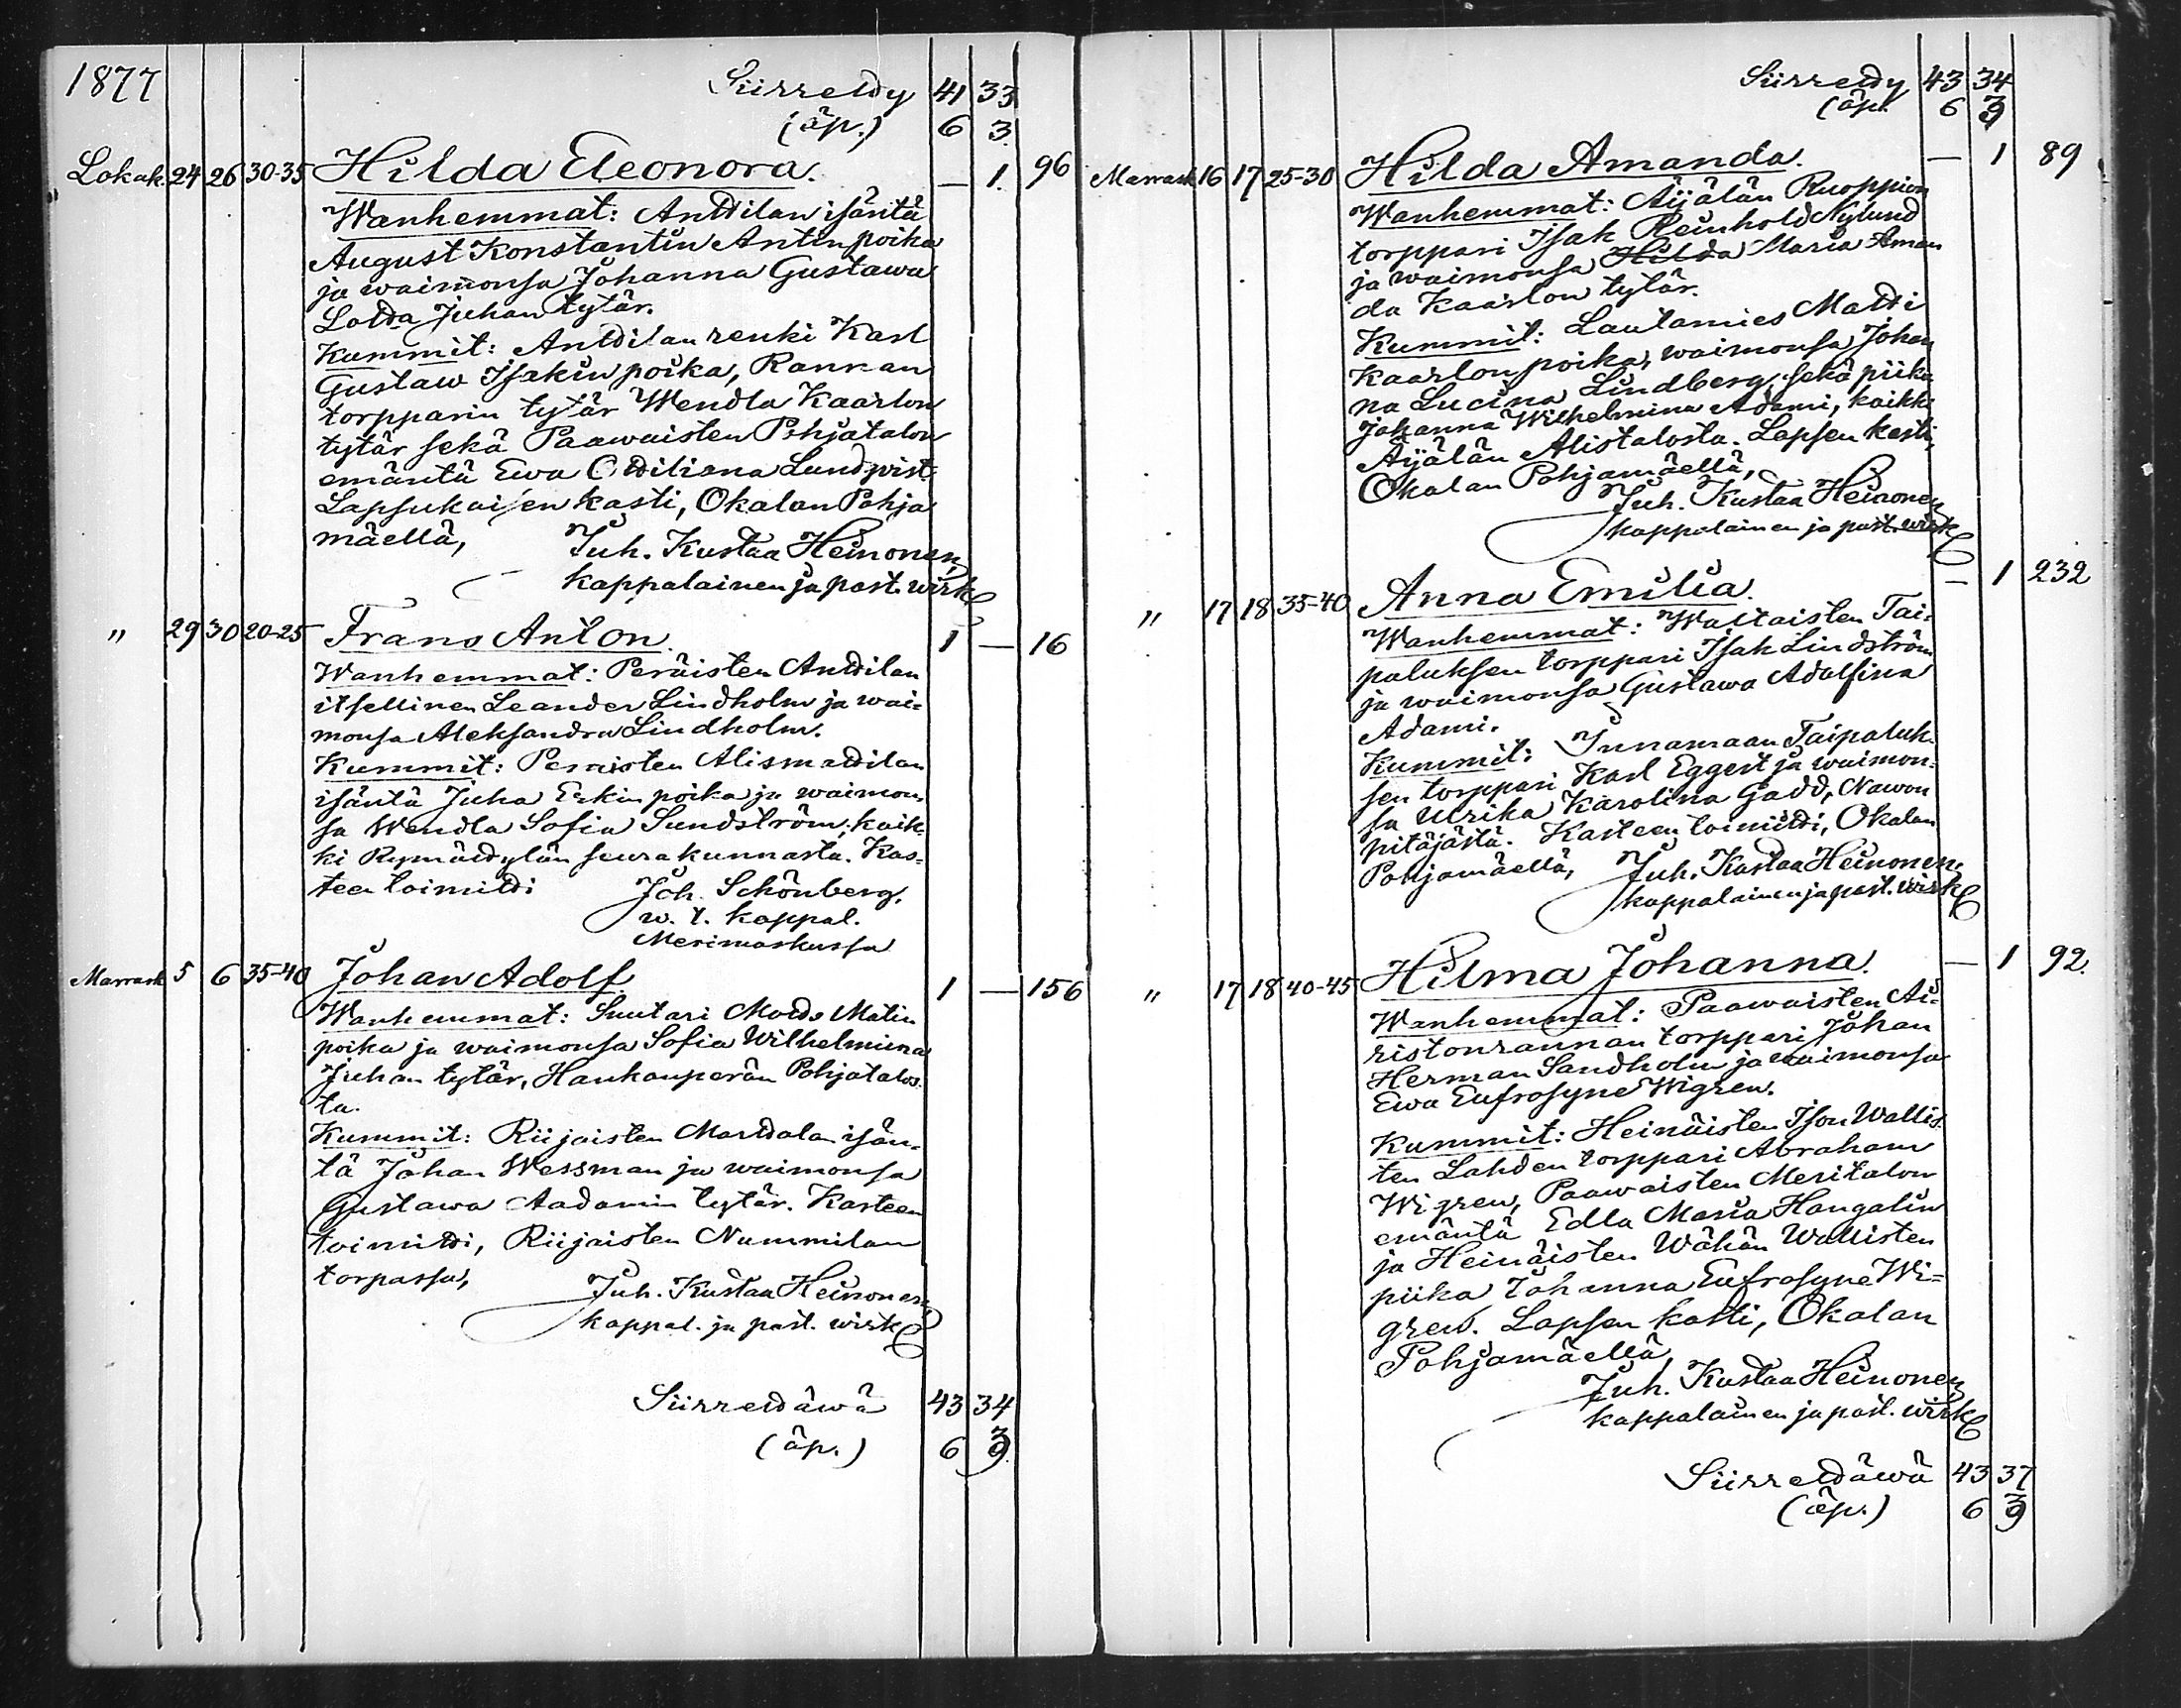 1877
Siirretty 41 33
(äp.) 6 3.
Lokak. 24 26 30-35 Hilda Eleonora. — 1. 96
Wanhemmat: Anttilan isäntä
August Konstantin Antin poika
ja waimonsa Johanna Gustawa
Lotta Juhan tytär.
Kummit: Anttilan renki Karl
Gustaw Isakin poika, Rannan
torpparin tytär Wendla Kaarlon
tytär sekä Paawaisten Pohjatalon
emäntä Ewa Ottiliana Lundqvist.
Lapsukaisen kasti, Okalan Pohja
mäellä,
Juh. Kustaa Heinonen,
kappalainen ja past. wirk
" 29 30 20-25 Frans Anton. 1 — 16
Wanhemmat: Peräisten Anttilan
itsellinen Leander Lindholm ja wai=
monsa Aleksandra Lindholm.
Kummit: Peräisten Alismattilan
isäntä Juha Erkin poika ja waimon=
sa Wendla Sofia Sundström, kaik=
ki Rymättylän seurakunnasta. Kas=
teen toimitti
Joh. Schönberg,
w. t. kappal.
Merimaskussa
Marrask 5 6 35-40 Johan Adolf. 1 — 156
Wanhemmat: Suutari Matts Matin
poika ja waimonsa Sofia Wilhelmiina
Juhan tytär, Haukanperän Pohjatalos=
ta.
Kummit: Riijaisten Marttalan isän=
tä Johan Wessman ja waimonsa
Gustawa Aadamin tytär. Kasteen
toimitti, Riijaisten Nummilan
torpassa,
Juh. Kustaa Heinonen,
kappal. ja past. wirk
Siirrettäwä 43 34
(äp.) 6 3
Siirretty 43 34
(äp. 6 3
Marrask 16 17 25-30 Hilda Amanda. — 1 89
Wanhemmat: Äijälän Ruoppion
torppari Isak Reinhold Nylund
ja waimonsa Hilda Maria Aman
da Kaarlon tytär.
Kummit: Lautamies Matti
Kaarlon poika, waimonsa Johan
na Lucina Lindberg, sekä piika
Johanna Wilhelmina Adami, kaikki
Äijälän Alistalosta. Lapsen kasti,
Okalan Pohjamäellä,
Juh. Kustaa Heinonen
kappalainen ja past. wirk
" 17 18 35-40 Anna Emilia. — 1 232
Wanhemmat: Waltaisten Tai=
paluksen torppari Isak Lindström
ja waimonsa Gustawa Adolfina
Adami.
Kummit: Innamaan Taipaluk=
sen torppari Karl Eggert ja waimon=
sa Ulrika Karolina Gadd, Nawon
pitäjästä. Kasteen toimitti, Okalan
Pohjamäellä,
Juh. Kustaa Heinonen,
kappalainen ja past. wirk
" 17 18 40-45 Hilma Johanna. — 1 92.
Wanhemmat: Paawaisten Ai=
ristonrannan torppari Johan
Herman Sandholm ja waimonsa
Ewa Eufrosyne Wigren.
Kummit: Heinäisten Ison Wallis=
ten Lahden torppari Abraham
Wigren, Paawaisten Meritalon
emäntä Edla Maria Hangelin
ja Heinäisten Wähän Wallisten
piika Johanna Eufrosyne Wi=
gren. Lapsen kasti, Okalan
Pohjamäellä,
Juh. Kustaa Heinonen
kappalainen ja past. wirk
Siirrettäwä 43 37
(äp.) 6 3